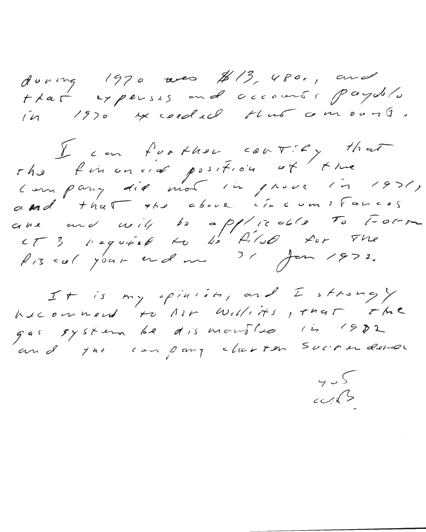 during 1970 was $13,480., and
that expenses and accounts payable
in 1970 exceeded that amount.
I can further certify that
the financial position of the
Company did not improve in 1971,
and that the above circumstances
are and will be applicable to Form
CT 3 required to be filed for the
fiscal year ending 31 Jan 1972.
It is my opinion, and I strongly
recommend to Mr Willits, that the
gas system be dismantled in 1972
and the company charter surrendered